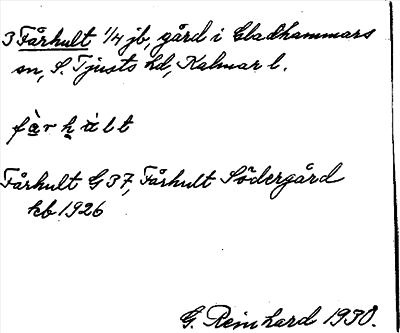 3 Fårhult 1/4 jb, gård i Gladhammars
sn, S. Tjusts hd, Kalmar l.
Fårhult G 37, Fårhult Södergård
kb 1926
G. Reinhard 1930.